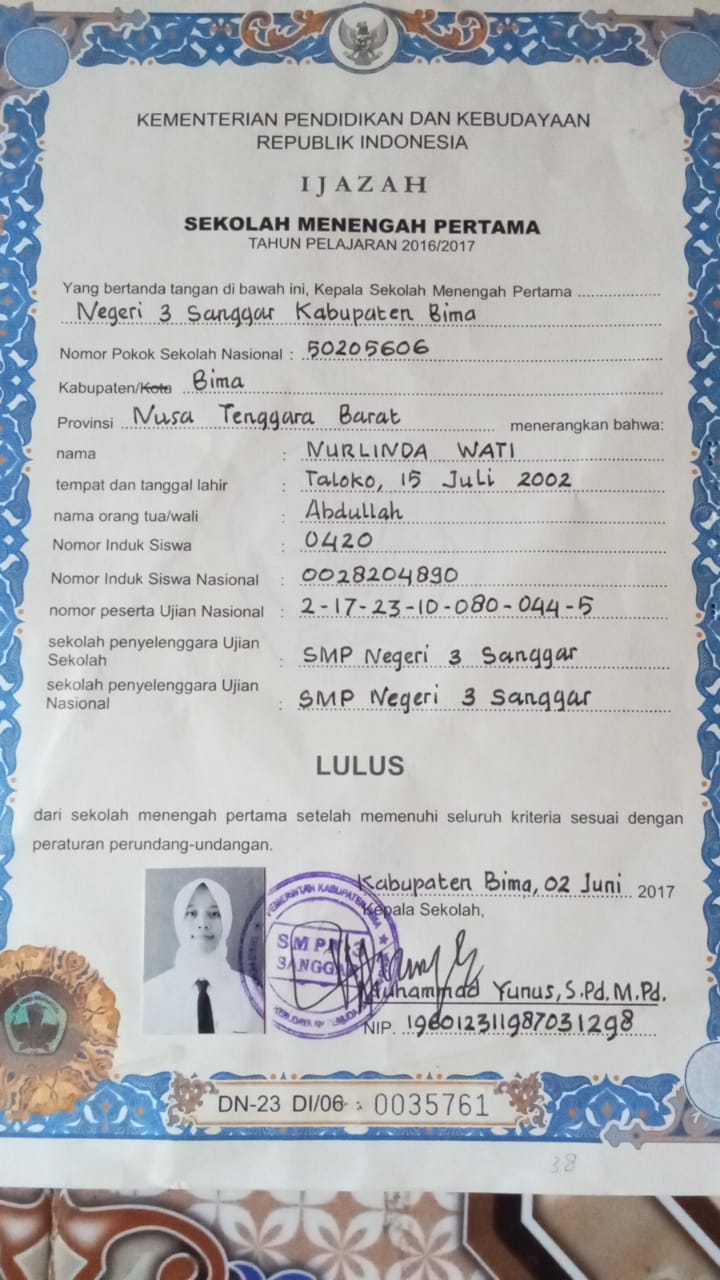 KEMENTERIAN PENDIDIKAN DAN KEBUDAYAAN
REPUBLIK INDONESIA
IJAZAH
SEKOLAH MENENGAH PERTAMA
TAHUN PELAJARAN 2016/2017
Yang bertanda tangan di bawah ini, Kepala Sekolah Menengah Pertama
Negeri 3 Sanggar Kabupaten Bima
Nomor Pokok Sekolah Nasional : 50205606
Kabupaten/Kota Bima
Provinsi Nusa Tenggara Barat menerangkan bahwa:
nama : NURLINDA WATI
tempat dan tanggal lahir : Taloko, 15 Juli 2002
nama orang tua/wali : Abdullah
Nomor Induk Siswa : 0420
Nomor Induk Siswa Nasional : 0028204890
nomor peserta Ujian Nasional : 2-17-23-10-080-044-5
sekolah penyelenggara Ujian
Sekolah : SMP Negeri 3 Sanggar
sekolah penyelenggara Ujian
Nasional : SMP Negeri 3 Sanggar
LULUS
dari sekolah menengah pertama setelah memenuhi seluruh kriteria sesuai dengan
peraturan perundang-undangan.
Kabupaten Bima, 02 Juni 2017
Kepala Sekolah,
PEMERINTAH KABUPATEN BIMA
SMPN 3
SANGGAR
Muhammad Yunus, S.Pd. M.Pd.
NIP. 196012311987031298
DN-23 DI/06 : 0035761
38